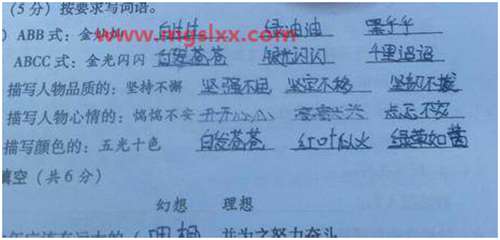 (5分)按要求写词语。
) ABB 式：金灿灿 白花花 绿油油 黑乎乎
www.mgslxx.com
ABCC 式：金光闪闪 白发苍苍 眼光闪闪 千里迢迢
描写人物品质的：坚持不懈 坚强不屈 坚定不移 坚韧不拔
描写人物心情的：惴惴不安
描写颜色的：五光十色 白发苍苍 红叶似火 绿草如茵
填空（共6分）
幻想 理想
并为之努力奋斗